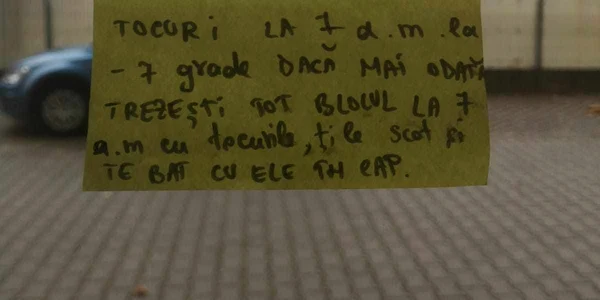 TOCURi LA 7 a.m. la
- 7 grade DACĂ MAI ODATĂ
TREZEȘTI TOT BLOCUL LA 7
a.m cu tocurile, ți le scot și
TE BAT CU ELE ÎN CAP.